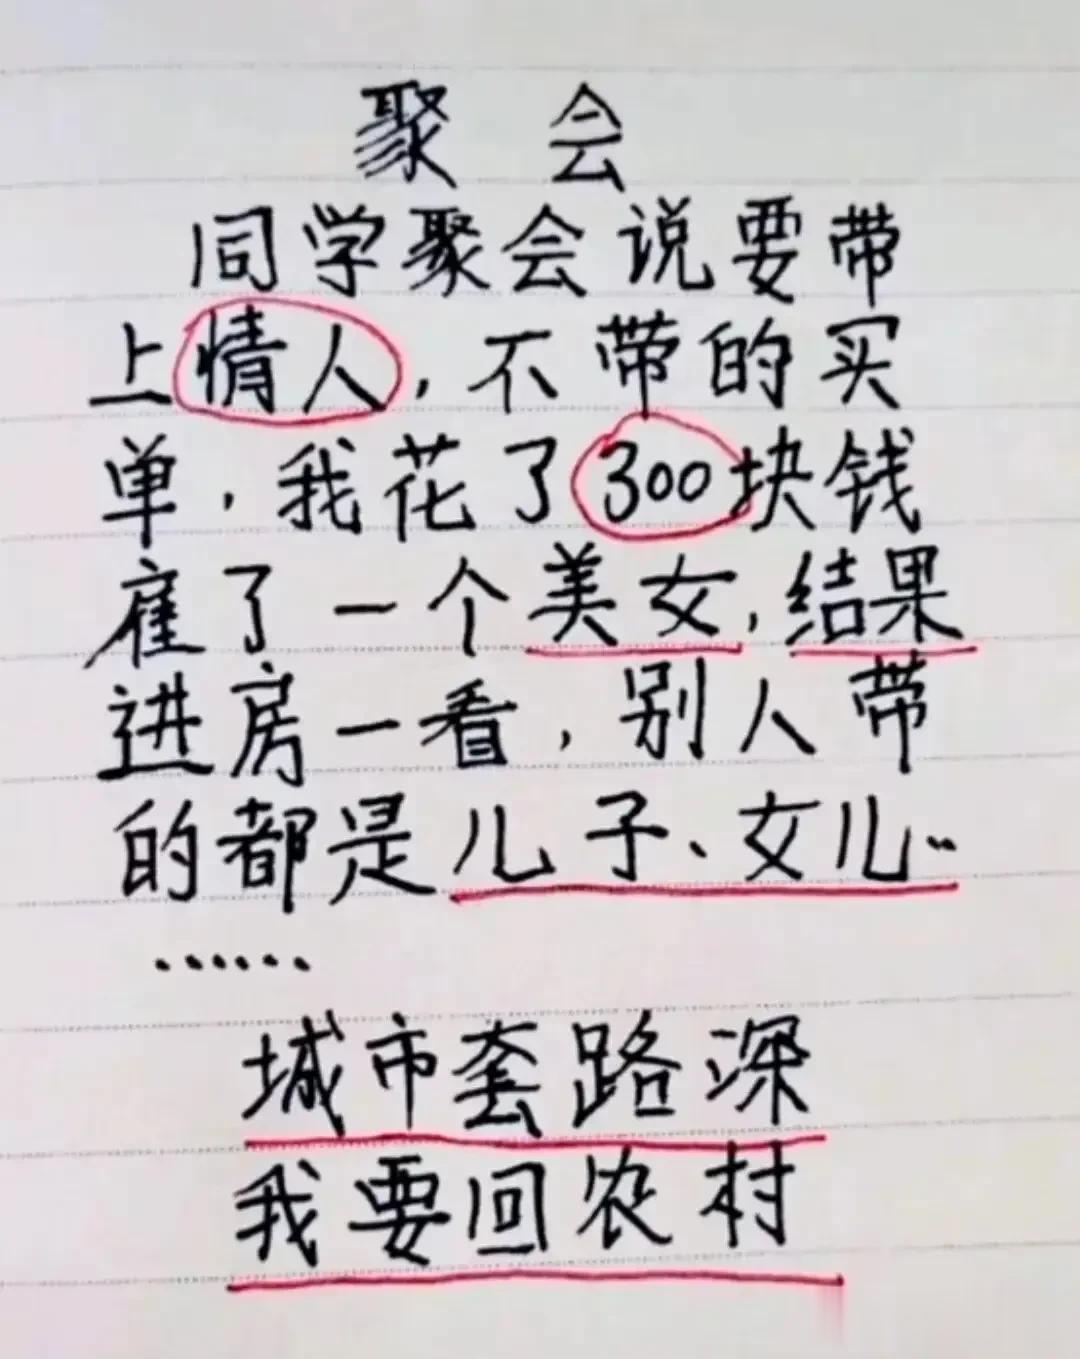 聚会
同学聚会说要带
上情人,不带的买
单,我花了300块钱
雇了一个美女,结果
进房一看,别人带
的都是儿子、女儿..
......
城市套路深
我要回农村